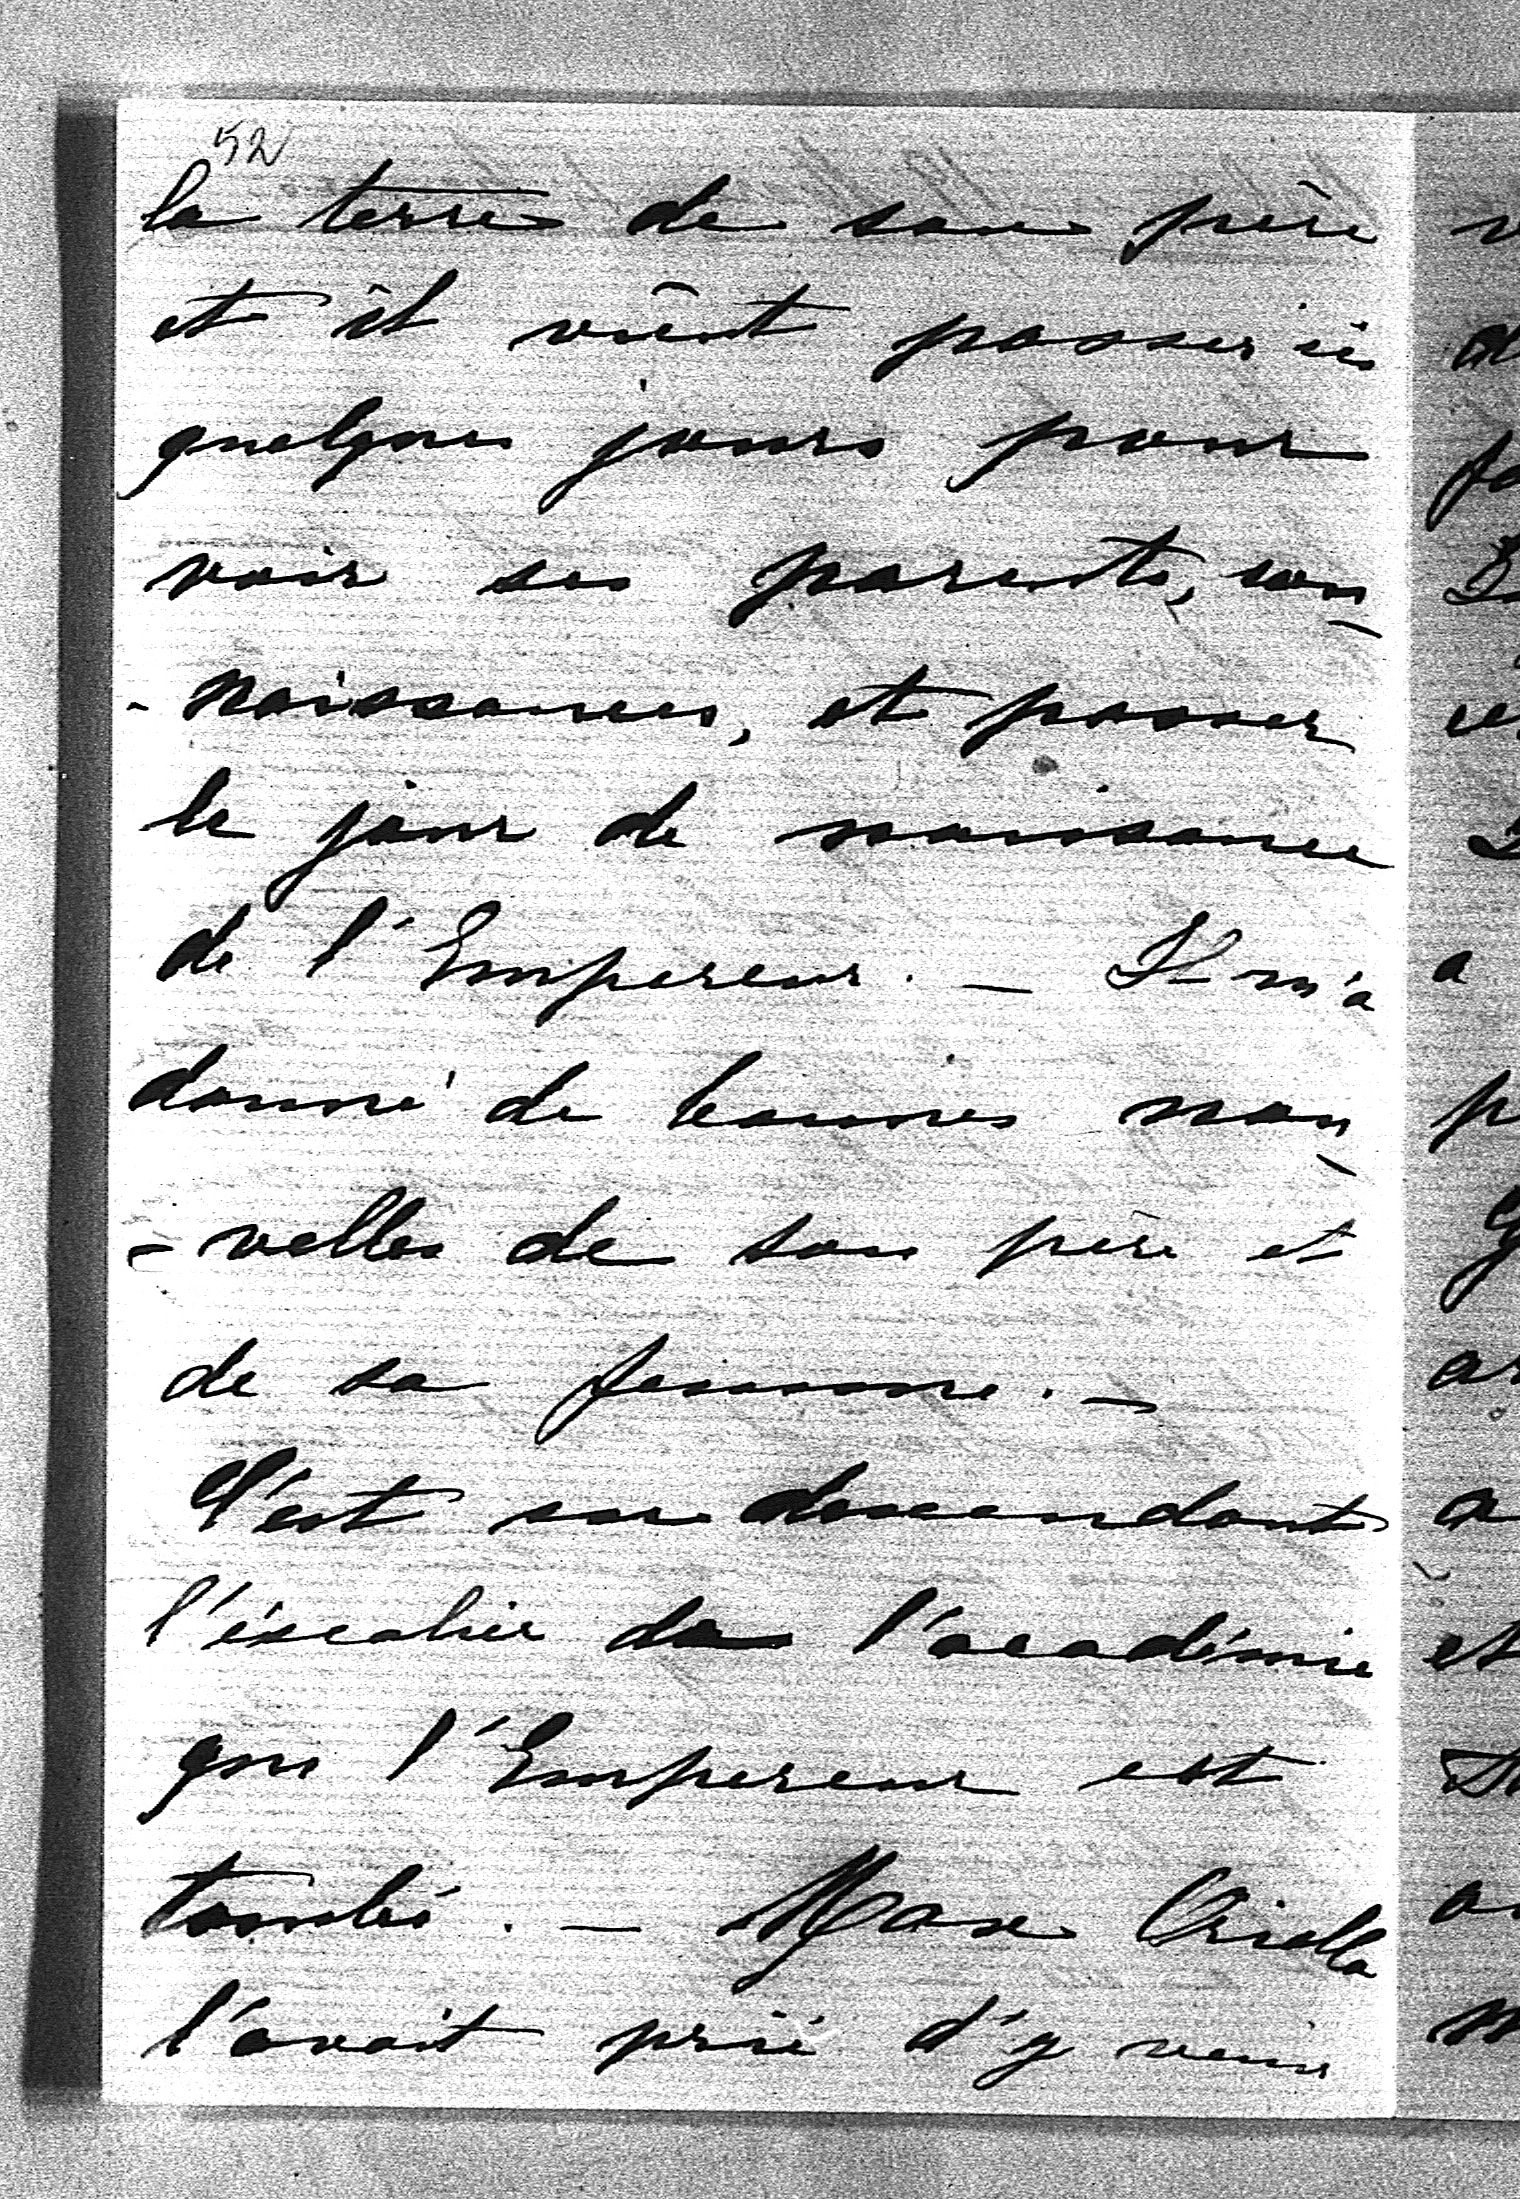 52
la terre de son père
et il vient passer ici
quelques jours pour
voir ses parents, con-
-naissances, et passer
le jour de naissance
de l'Empereur. — Il m'a
donné de bonnes nou-
-velles de son père et
de sa femme. —
C'est en descendant
l'éscalier de l'académie
que l'Empereur est
tombé. — Max
l'avait prié d'y venir